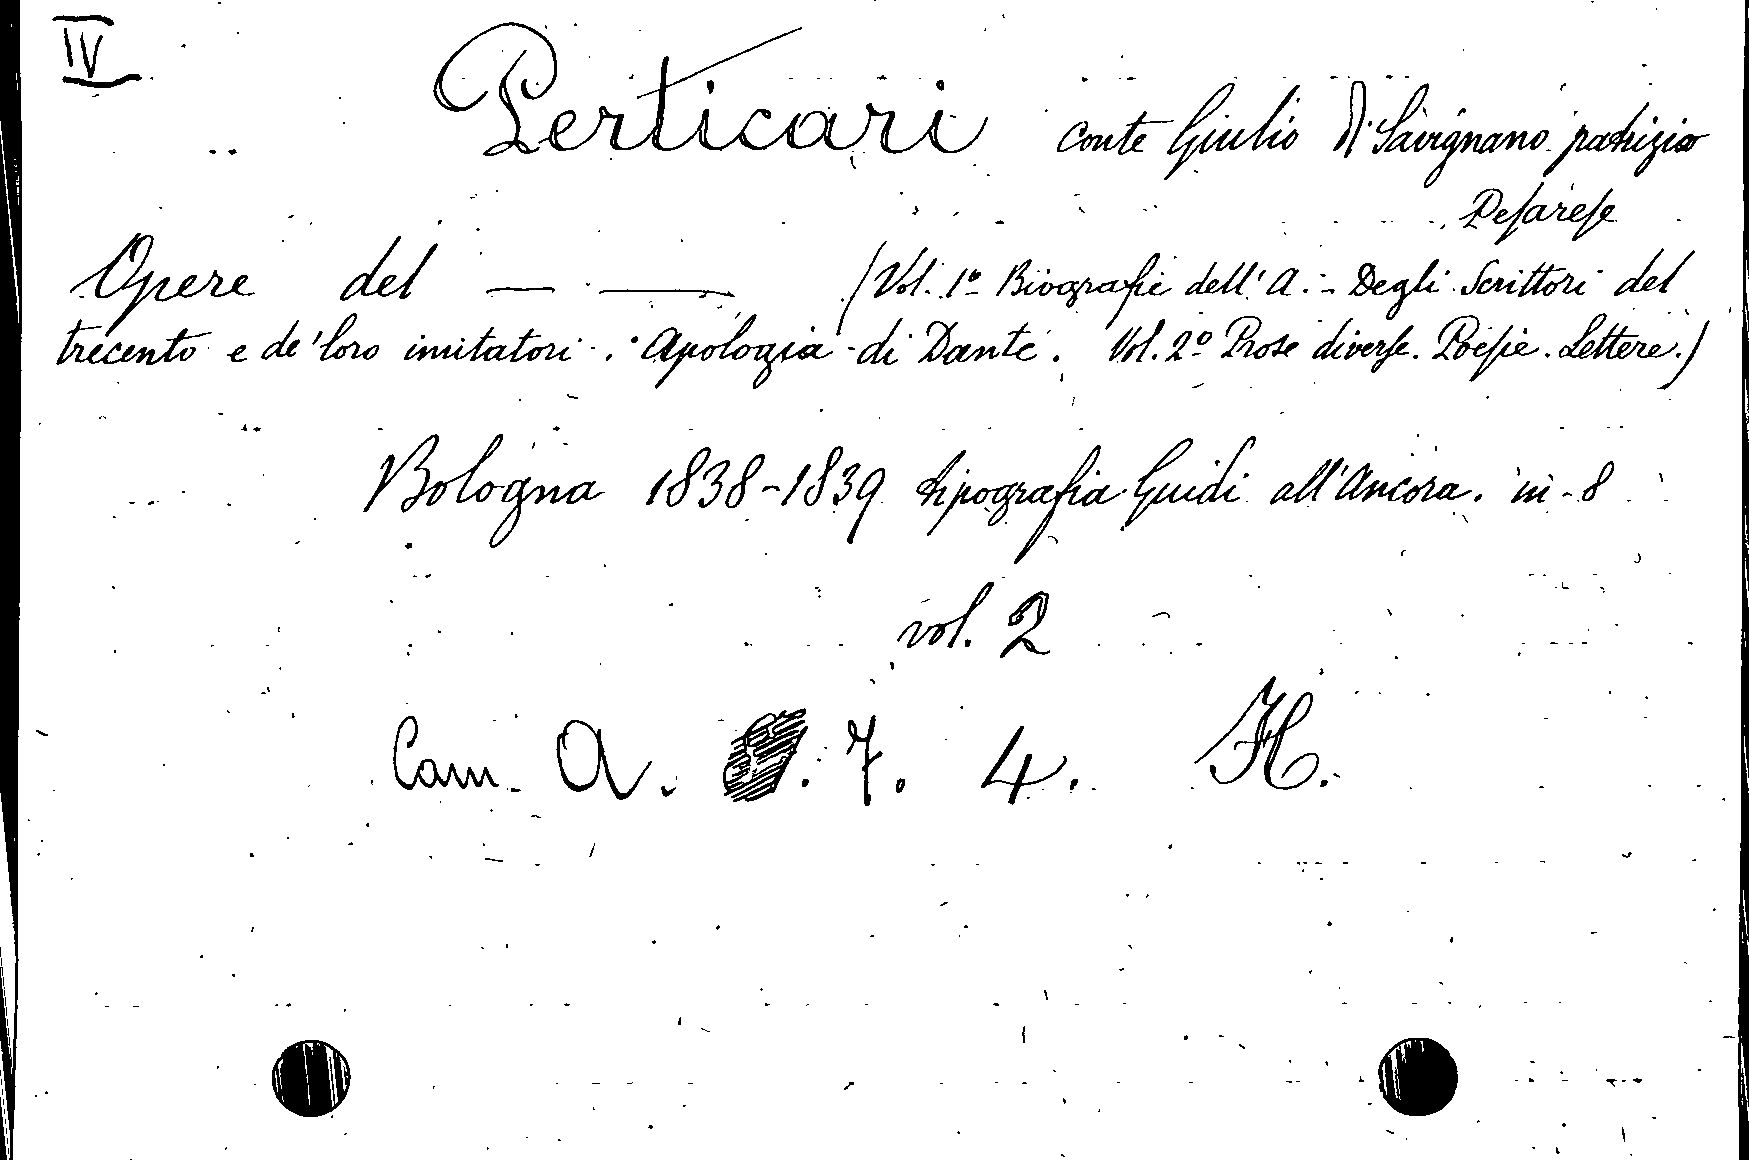 IV
Perticari conte Giulio di Savignano patrizio
Pesarese
Opere del — — (Vol. 1º Biografie dell'A. - Degli Scrittori del
trecento e de' loro imitatori. Apologia di Dante. Vol. 2º Prose diverse. Poesie. Lettere.)
Bologna 1838-1839 tipografia Guidi all'Ancora. in-8
vol. 2
Cam. A. . 7. 4. H.